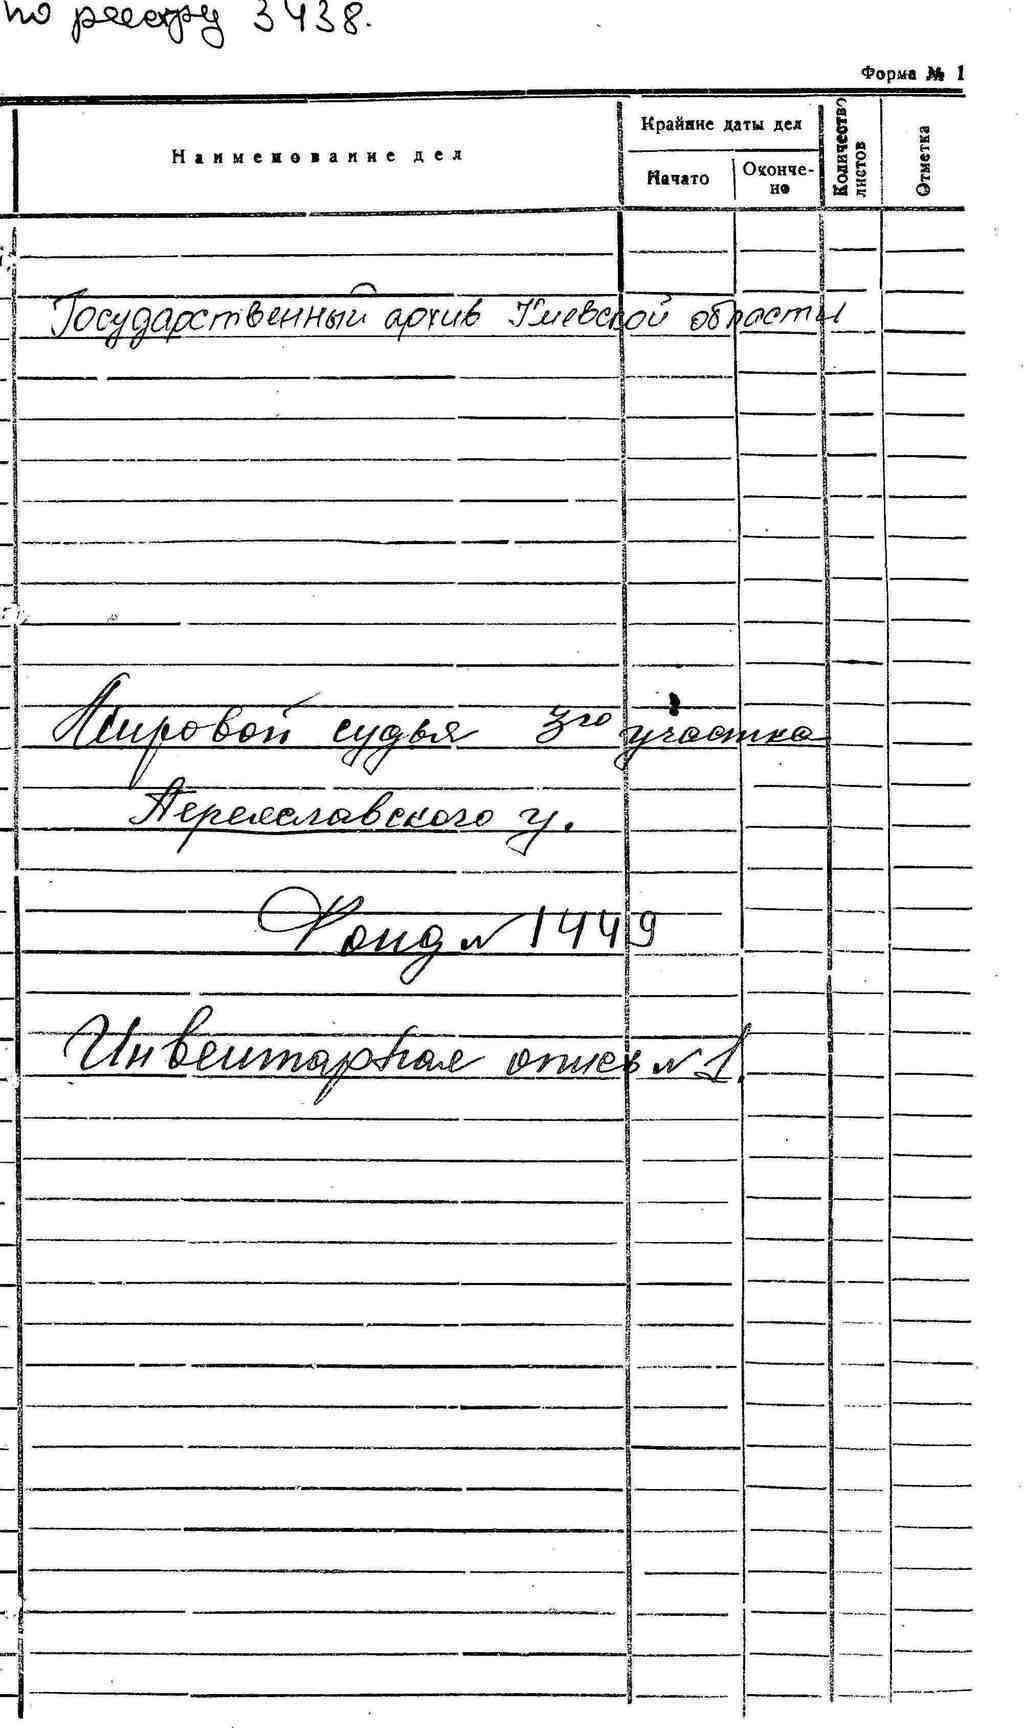 по реестру 3438.
Форма № 1
Наименование дел
Крайние даты дел
Начато
Окончено
Количество листов
Отметка
Государственный архив Киевской области
Мировой судья 3го участка
Переяславского у.
Фонд № 1449
Инвентарная опись № 1.